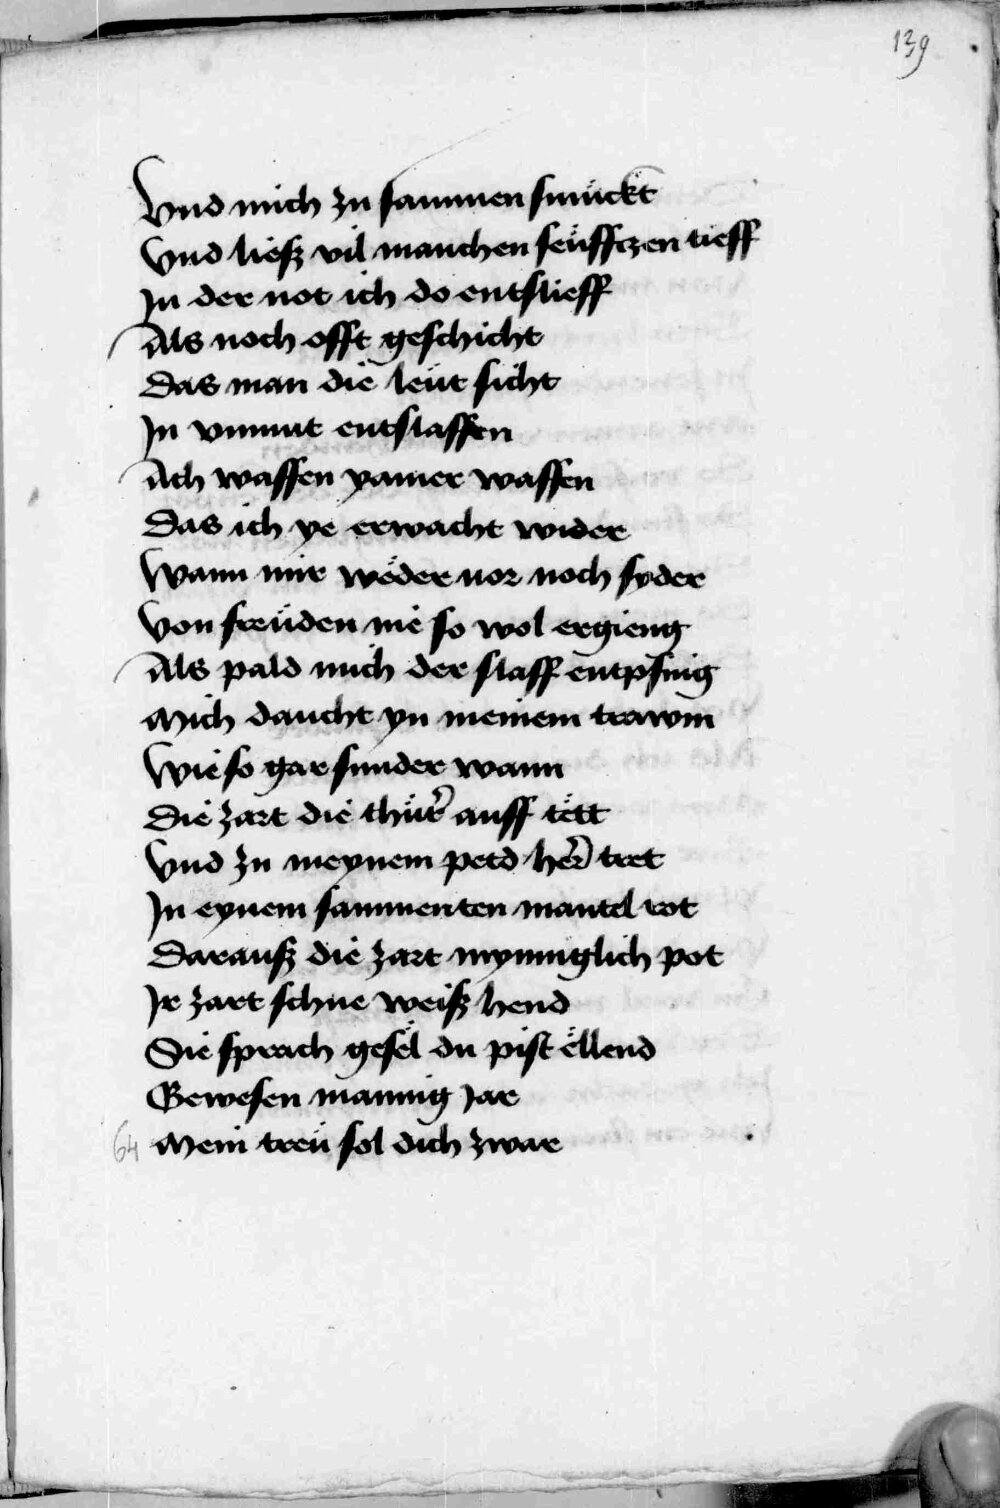 139
Vnd mich zu sammen smückt
Vnd ließ vil manchen seüfftzen tieff
In der not ich do entslieff
Als noch offt geschicht
Das man die leüt sicht
In vnmut entslaffen
Ach waffen yamer waffen
Das ich ye erwacht wider
Wann mir weder vor noch syder
Von freüden nie so wol ergieng
Als pald mich der slaff entpfing
Mich daucht yn meinem trawm
Wie so gar sunder wann
Die zart die thür auff tëtt
Vnd zu meynem petd her tret
In eynem sammenten mantel rot
Darauß die zart mynniglich pot
Ir zart schne weiß hend
Sie sprach gesël du pist ëllend
Gewesen mannig Jar
64 Mein treü sol dich zwar